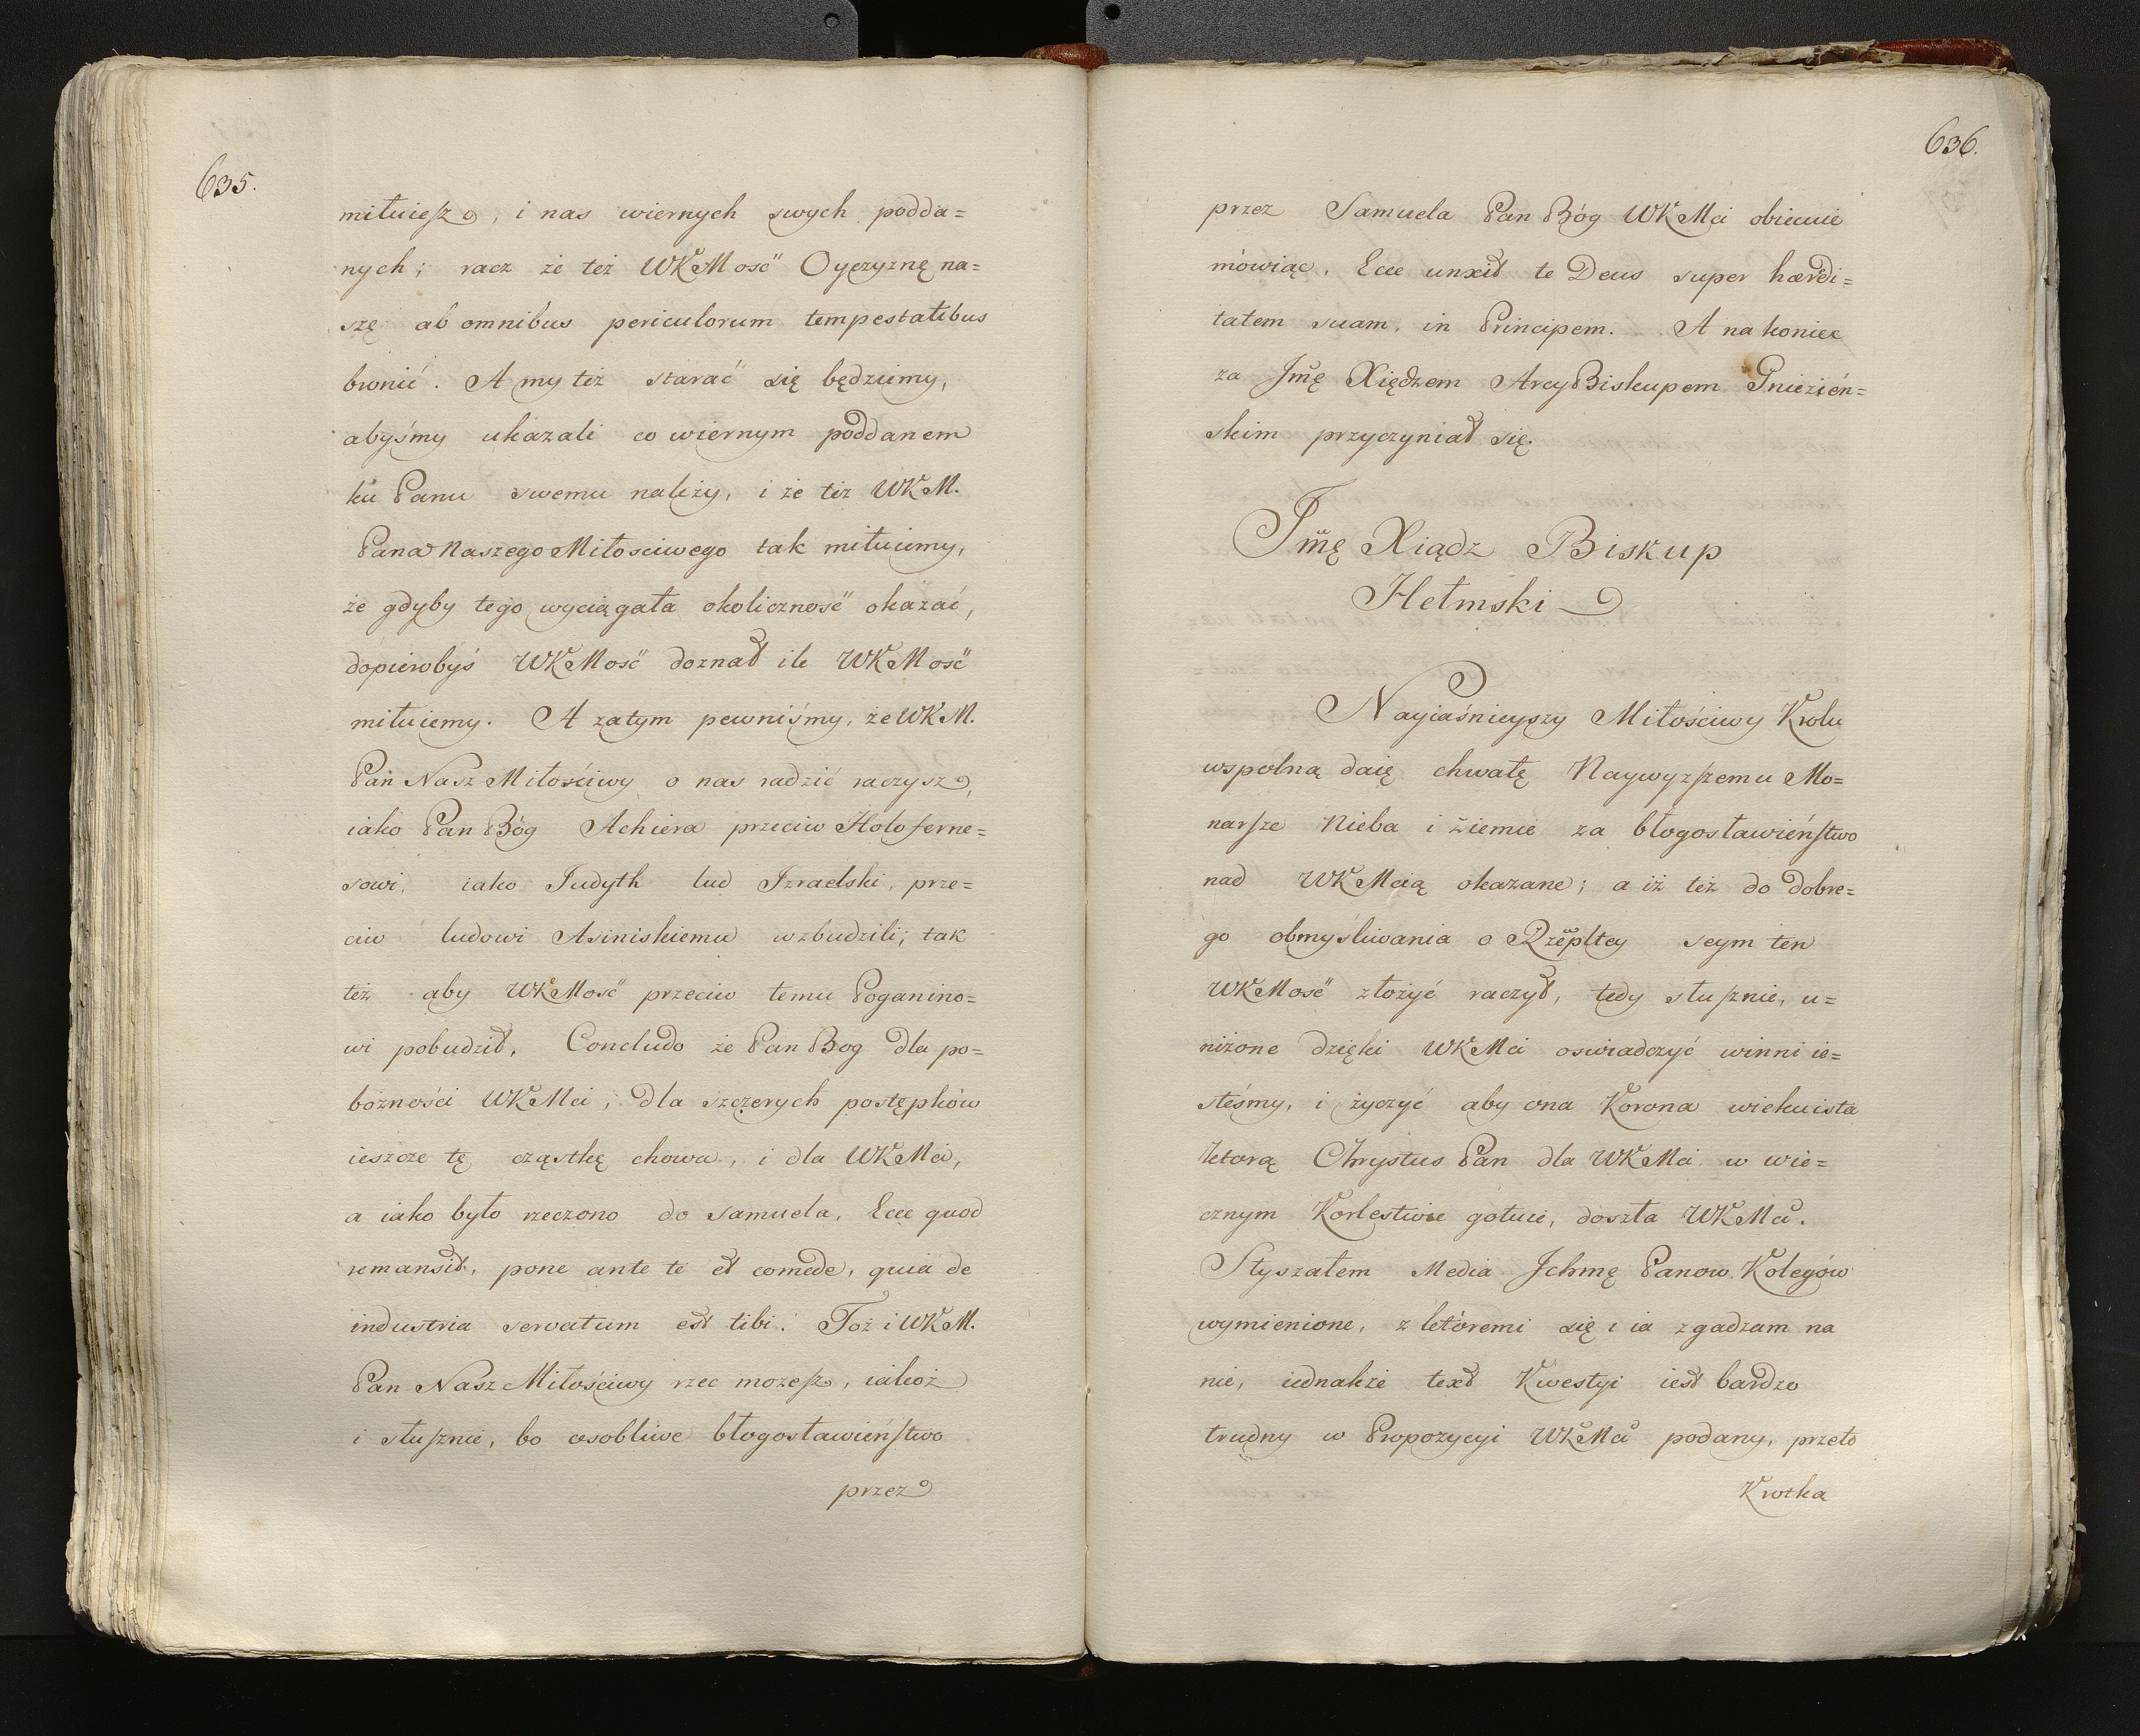 635.
miłuiesz, i nas wiernych swych podda=
nych; racz że też WKMość Oyczyznę na=
szę ab omnibus periculorum tempestatibus
bronić. A my też starać się będziemy,
abyśmy ukazali co wiernym poddanem
ku Panu swemu należy, i że też WKM.
Pana Naszego Miłosciwego tak miłuiemy,
że gdyby tego wyciągała okoliczność okazać,
dopierobyś WKMość doznał ile WKMość
miłuiemy. A zatym pewniśmy, że WKM.
Pan Nasz Miłościwy o nas radzić raczysz,
iako Pan Bóg Achiera przeciw Holoferne=
sowi, iako Judyth lud Izraelski, prze=
ciw ludowi Asiniskiemu wzbudzili; tak
też aby WKMość przeciw temu Poganino=
wi pobudził. Concludo że Pan Bog dla po=
bożności WKMci, dla szczerych postępków
ieszcze tę cząstkę chowa, i dla WKMci,
a iako było rzeczono do Samuela, Ecce quod
remansit, pone ante te et comede, quia de
industria servatum est tibi. Toż i WKM.
Pan Nasz Miłościwy rzec możesz, iakoż
i słusznie, bo osobliwe błogosławieństwo
przez
636.
przez Samuela Pan Bóg WKMci obiecuie
mówiąc, Ecce unxit te Deus super hæredi=
tatem suam, in Principem. A na koniec
za Jmę Xiędzem ArcyBiskupem Gnieźień=
skim przyczyniał się.
Jmę Xiądz Biskup
Hełmski
Nayiaśnieyszy Miłościwy Krolu
wspolną daię chwałę Naywyzszemu Mo=
narsze Nieba i ziemie za błogosławieństwo
nad WKMcią okazane; a iż też do dobre=
go obmyśliwania o Rzepltey seym ten
WKMość złożyć raczył, tedy słusznie, u=
niżone dzięki WKMci oswiadczyć winni ie=
steśmy, i życzyć aby ona Korona wiekuista
ktorą Chrystus Pan dla WKMci w wie=
cznym Korlestwie gotuie, doszła WKMci.
Słyszałem Media Ichmę Panow Kolegów
wymienione, z któremi się i ia zgadzam na
nie, iednakże text Kwestyi iest bardzo
trudny w Propozycyi WKMci podany, przeto
Krotka